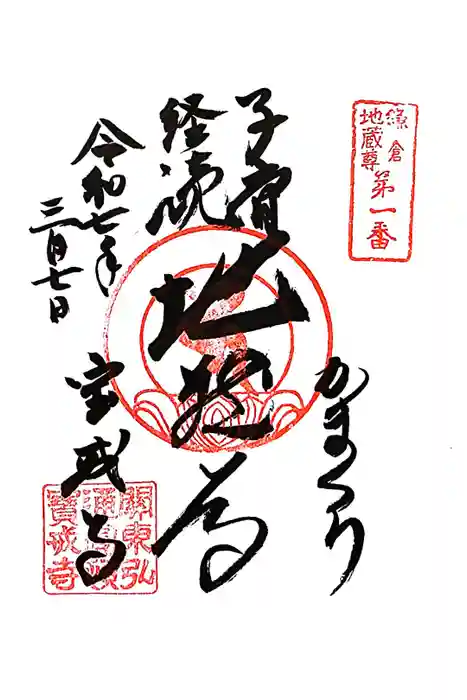 鎌倉
地蔵尊
第一番
かまくら
子育
経読
地蔵尊
令和七年
三月七日
宝戒寺
關東弘
寶戒寺